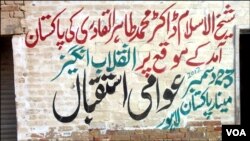 شیخ الاسلام ڈاکٹر محمد طاہر القادری کی پاکستان
آمد کے موقع پر انقلاب انگیز
عوامی استقبال
23 دسمبر
مینار پاکستان
لاہور
VOA